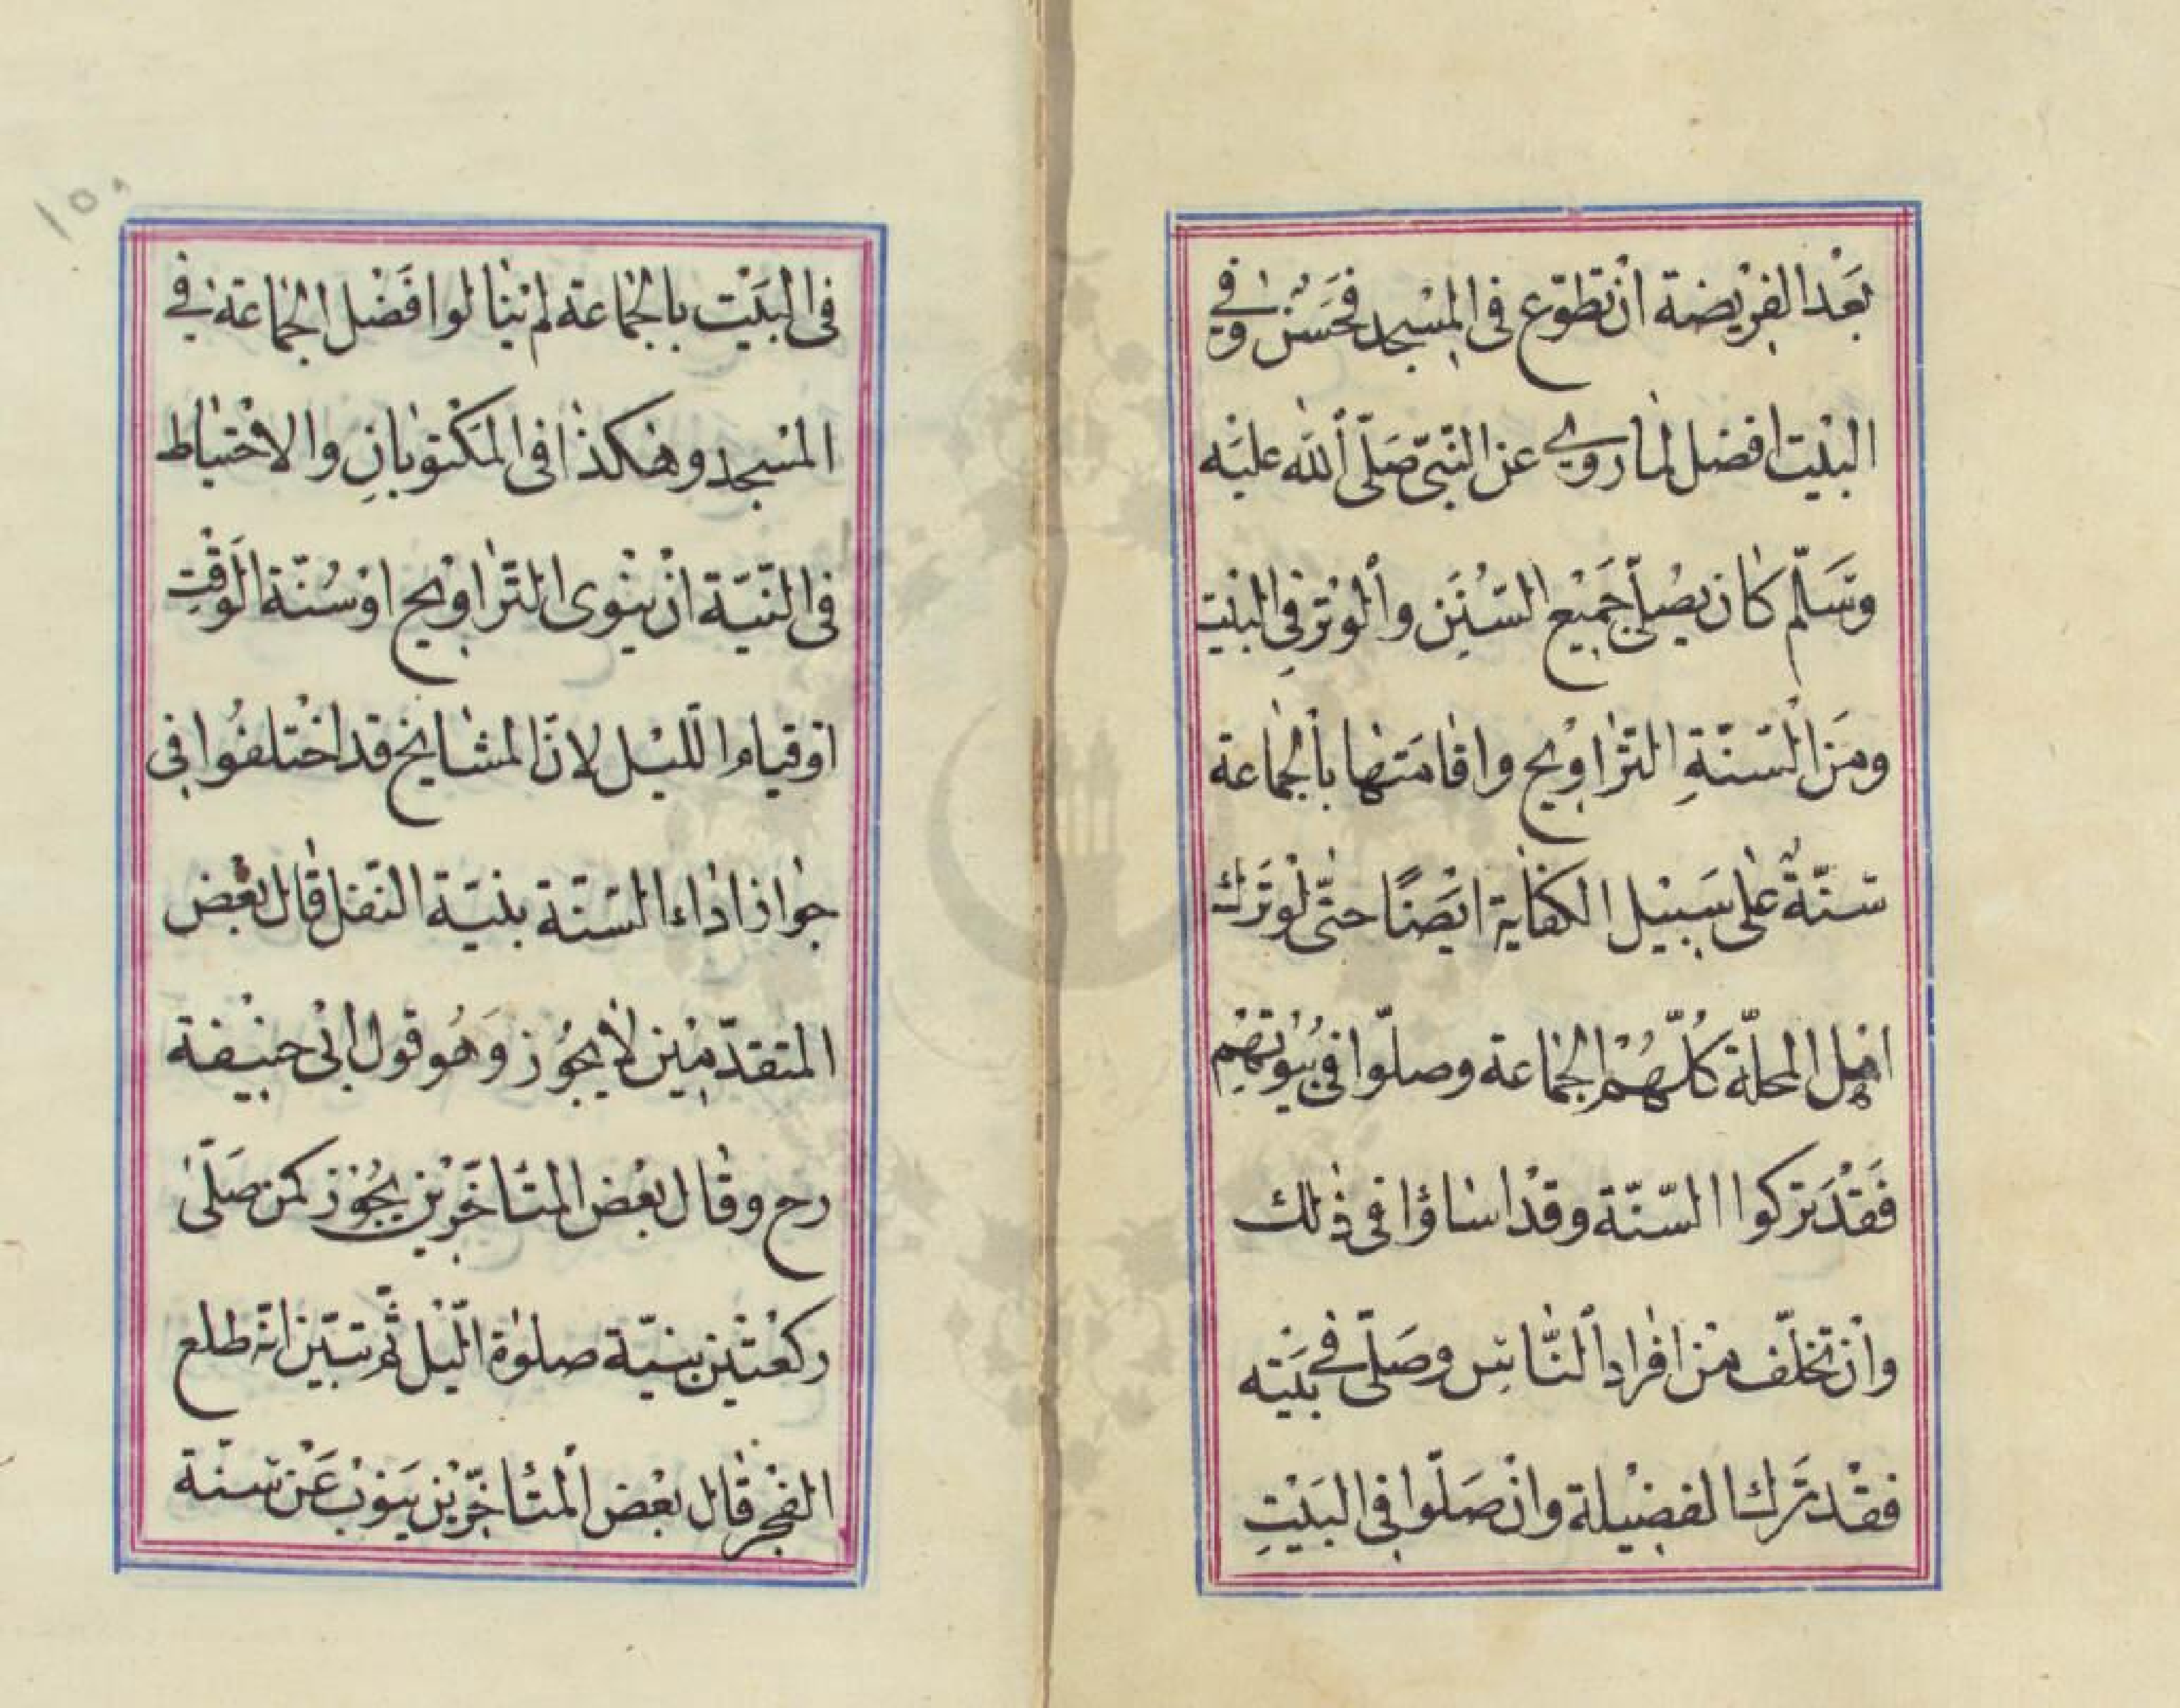 بَعْدَ الفَرِيْضَة انْ تطوّع فى المسْجد فَحَسَنٌ وَفِي
البَيْت افضل لما رُوِي عن النَّبىّ صَلّى اللّٰه عليْه
وَسَلّم كانَ يصُلىّ جَمِيْعَ السُّنَن والْوِتْرِ فِى البَيْت
ومنَ السّنّةِ التَّرٰاوِيْحِ واقامَتهَا بالْجماعة
سنّةٌ على سَبِيْل الكفايَة ايْضًا حتّى لوْ تَرَك
اهْل المحلّة كُلّهُمْ الجماعة وصلّوا فى بُيُوتهِمْ
فَقَدْ تركوا السّنّة وقدْ اساؤا فى ذٰلك
وانْ تخلّف منْ افْراد النّاسِ وصَلّى فى بَيْته
فقدْ تَرك الفضيْلة وانْ صَلّوا فى البَيْتِ
فى البَيْت بالجماعة لمْ ينالوا فَضْل الجماعة فى
المسْجد وهٰكذا فى المكْتوباتِ والاحْتياط
فى النّيّة انْ ينْوى التَّرٰاوِيْح اوْ سُنّة الْوَقْتِ
اوْ قيام اللّيْل لانّ المشايخ قد اخْتلفُوا فى
جواز اداء السّنّة بنيّة النّفل قال بعْض
المتقدّمِيْن لا يجُوز وَهُو قول ابىْ حنيْفة
رح وقال بعْض المتأخّرِيْن يجُوْز كمن صَلّى
ركْعتَيْن بنيّة صلوٰة اللّيْل ثُمّ تبيّن انّه طلع
الفجْر قال بعْض المتأخّرِيْن يَنوْبُ عَنْ سنّة
١٥٠